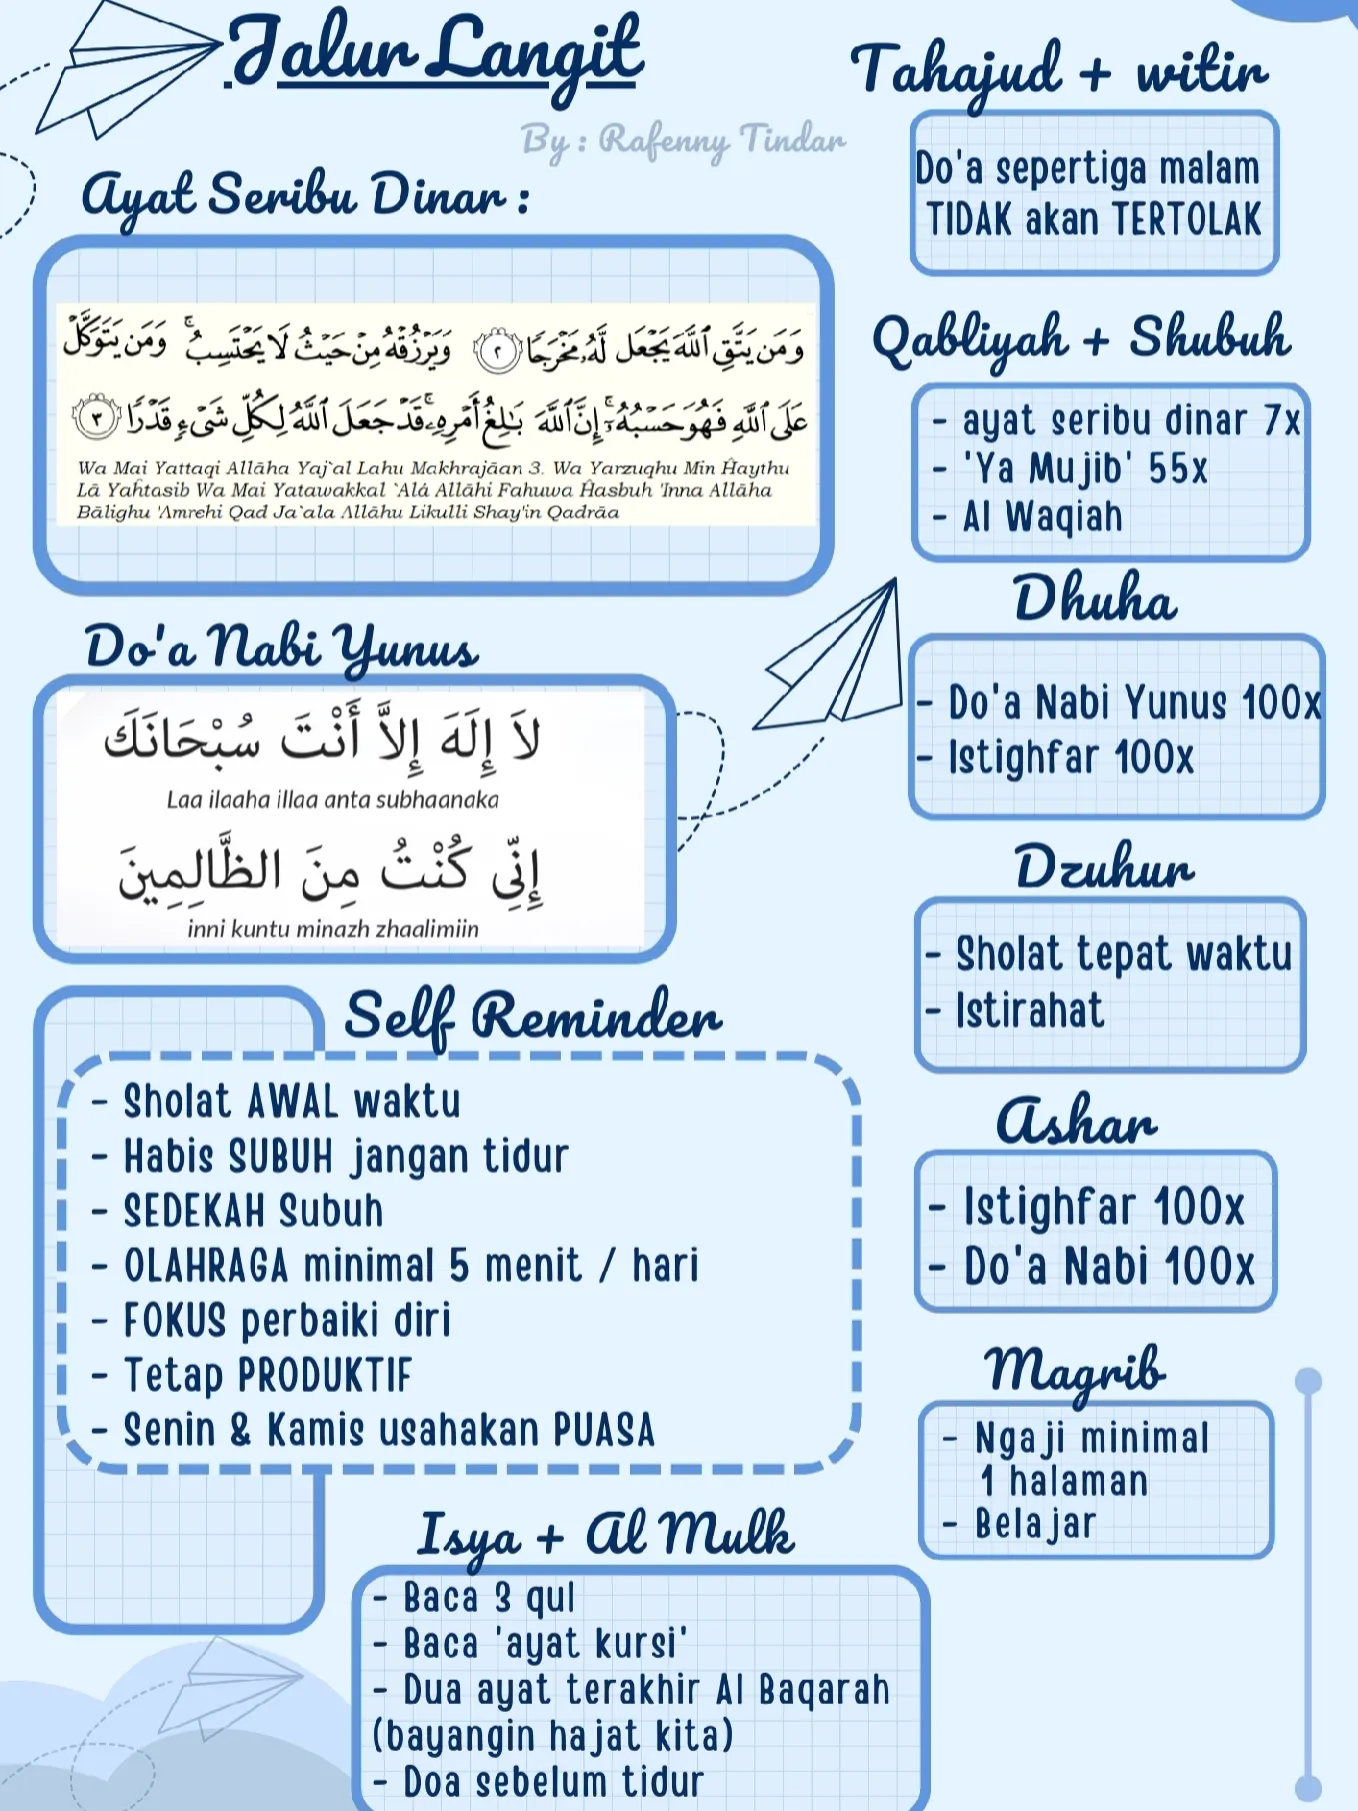 Jalur Langit
By : Rafenny Tindar
Ayat Seribu Dinar :
وَمَن يَتَّقِ ٱللَّهَ يَجْعَل لَّهُۥ مَخْرَجًا ٢ وَيَرْزُقْهُ مِنْ حَيْثُ لَا يَحْتَسِبُ ۚ وَمَن يَتَوَكَّلْ
عَلَى ٱللَّهِ فَهُوَ حَسْبُهُۥٓ ۚ إِنَّ ٱللَّهَ بَـٰلِغُ أَمْرِهِۦ ۚ قَدْ جَعَلَ ٱللَّهُ لِكُلِّ شَىْءٍ قَدْرًا ٣
Wa Mai Yattaqi Allāha Yaj`al Lahu Makhrajāan 3. Wa Yarzuqhu Min Ĥaythu
Lā Yaĥtasib Wa Mai Yatawakkal `Alá Allāhi Fahuwa Ĥasbuh 'Inna Allāha
Bālighu 'Amrehi Qad Ja`ala Allāhu Likulli Shay'in Qadrāa
Do'a Nabi Yunus
لاَ إِلَهَ إِلاَّ أَنْتَ سُبْحَانَكَ
Laa ilaaha illaa anta subhaanaka
إِنِّي كُنْتُ مِنَ الظَّالِمِينَ
inni kuntu minazh zhaalimiin
Self Reminder
- Sholat AWAL waktu
- Habis SUBUH jangan tidur
- SEDEKAH Subuh
- OLAHRAGA minimal 5 menit / hari
- FOKUS perbaiki diri
- Tetap PRODUKTIF
- Senin & Kamis usahakan PUASA
Tahajud + witir
Do'a sepertiga malam
TIDAK akan TERTOLAK
Qabliyah + Shubuh
- ayat seribu dinar 7x
- 'Ya Mujib' 55x
- Al Waqiah
Dhuha
- Do'a Nabi Yunus 100x
- Istighfar 100x
Dzuhur
- Sholat tepat waktu
- Istirahat
Ashar
- Istighfar 100x
- Do'a Nabi 100x
Magrib
- Ngaji minimal
1 halaman
- Belajar
Isya + Al Mulk
- Baca 3 qul
- Baca 'ayat kursi'
- Dua ayat terakhir Al Baqarah
(bayangin hajat kita)
- Doa sebelum tidur